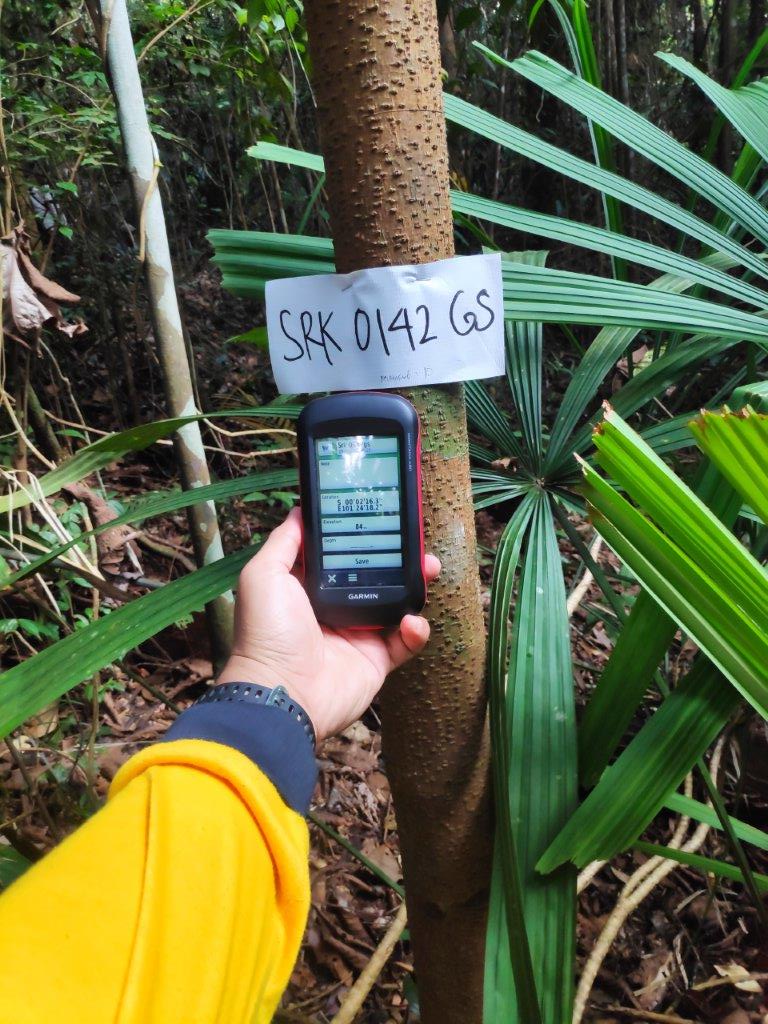 SRK 0142 GS
Note
Location
S 00°02'16.3"
E101°24'18.2"
Elevation
84 m
Depth
Save
GARMIN